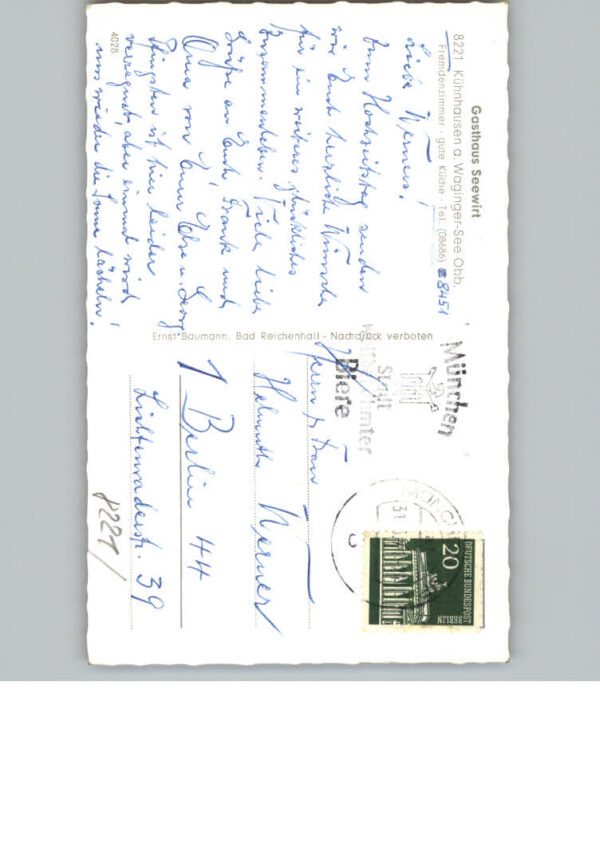 Gasthaus Seewirt
8221 Kühnhausen a. Waginger-See Obb.
Fremdenzimmer - gute Küche - Tel. (08686) 8451
Liebe Werners!
Zum Hochzeitstag senden
wir Euch herzliche Wünsche
für ein weiteres glückliches
Zusammenleben. Viele liebe
Grüße an Euch, Frank und
Oma von Eurer Else u. Georg
Pfingsten ist hier leider
verregnet, aber einmal wird
uns wieder die Sonne lächeln!
4028
Ernst Baumann, Bad Reichenhall - Nachdruck verboten
München
Stadt
Biere
DEUTSCHE BUNDESPOST
BERLIN
20
Herrn u. Frau
Helmuth Werner
1 Berlin 44
Lichtenraderstr. 39
8221/